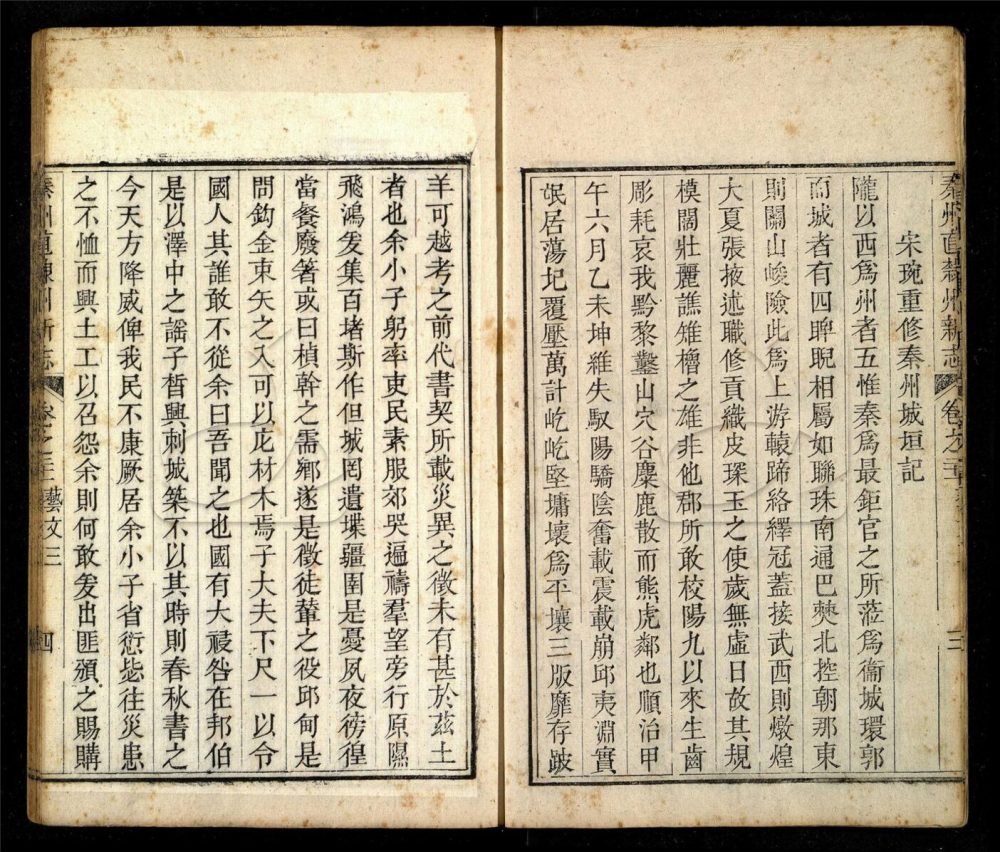 秦州直隸州新志 卷之二十 三
宋琬重修秦州城垣記
隴以西爲州者五惟秦爲最鉅官之所蒞爲衞城環郭
而城者有四睥睨相屬如聯珠南通巴僰北控朝那東
則關山峻險此爲上游轅蹄絡繹冠蓋接武西則燉煌
大夏張掖述職修貢織皮琛玉之使歲無虛日故其規
模閎壯麗譙雉櫓之雄非他郡所敢校陽九以來生齒
彫耗哀我黔黎鑿山穴谷麋鹿散而熊虎鄰也順治甲
午六月乙未坤維失馭陽驕陰奮載震載崩邱夷淵實
氓居蕩圮覆壓萬計屹屹堅墉壞爲平壤三版靡存跛
羊可越考之前代書契所載災異之徵未有甚於茲土
者也余小子躬率吏民素服郊哭遍禱羣望旁行原隰
飛鴻爰集百堵斯作但城罔遺堞疆圉是憂夙夜徬徨
當餐廢箸或曰楨幹之需鄕遂是徵徒輦之役邱甸是
問鈎金束矢之入可以庀材木焉子大夫下尺一以令
國人其誰敢不從余曰吾聞之也國有大祲咎在邦伯
是以澤中之謠子晳興刺城築不以其時則春秋書之
今天方降威俾我民不康厥居余小子省愆毖往災患
之不恤而興土工以召怨余則何敢爰出匪頒之賜購
秦州直隸州新志 卷之二十 藝文三 四